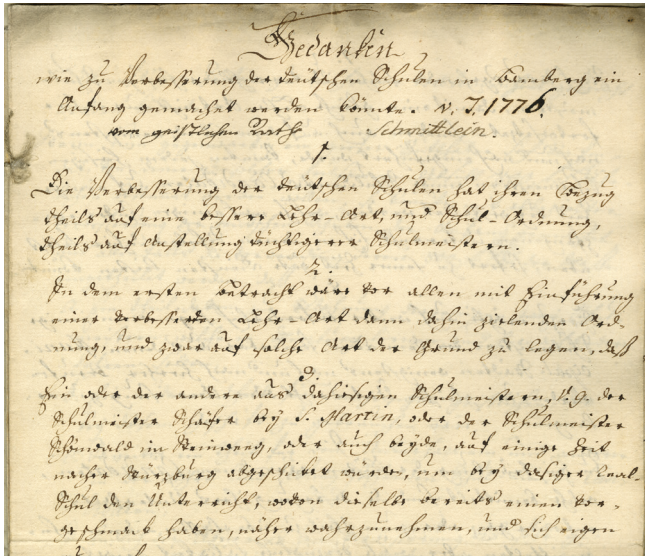 Gedanken
wie zu Verbesserung der deutschen Schulen in Bamberg ein
Anfang gemachet werden könnte. v. J. 1776.
vom geistlichen Rathe Schmittlein.
1.
Die Verbesserung der deutschen Schulen hat ihren Bezug
theils auf eine bessere Lehr-Art, und Schul-Ordnung,
theils auf Anstellung tüchtigerer Schulmeistern.
2.
In dem ersten Betracht wäre vor allen mit Einführung
einer verbesserten Lehr-Art dann dahin zielenden Ord-
nung, und zwar auf solche Art der Grund zu legen, daß
3.
Ein oder der andere aus dahiesigen Schulmeistern, v. g. der
Schulmeister Schäfer bey S. Martin, oder der Schulmeister
Schönwald im Steinweeg, oder auch beyde, auf einige Zeit
nacher Würzburg abgeschicket würden, um bey dasiger Real-
Schul den Unterricht, wovon dieselbe bereits einen Vor-
geschmack haben, näher wahrzunehmen, und sich eigen